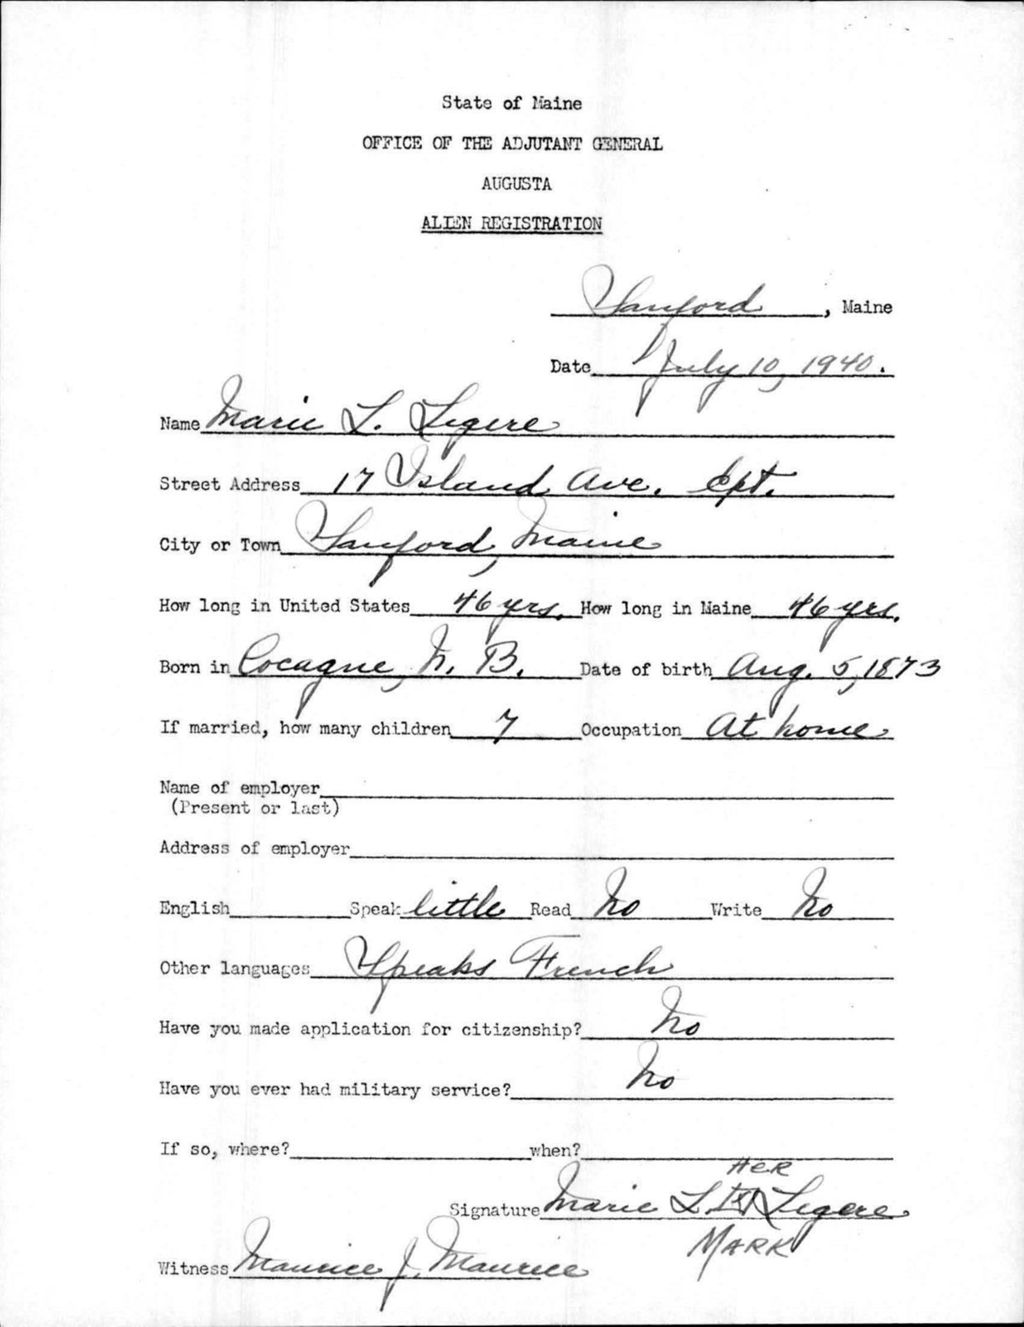 State of Maine
OFFICE OF THE ADJUTANT GENERAL
AUGUSTA
ALIEN REGISTRATION
Sanford, Maine
Date July 10, 1940.
Name Marie L. Legere
Street Address 17 Island Ave. Ept.
City or Town Sanford, Maine
How long in United States 46 yrs. How long in Maine 46 yrs.
Born in Cocagne, N. B. Date of birth Aug. 5, 1873
If married, how many children 7 Occupation At home
Name of employer
(Present or last)
Address of employer
English Speak little Read No Write No
Other languages Speaks French
Have you made application for citizenship? No
Have you ever had military service? No
If so, where? when?
HER
Signature Marie L. X Legere
MARK
Witness Maurice J. Maurice